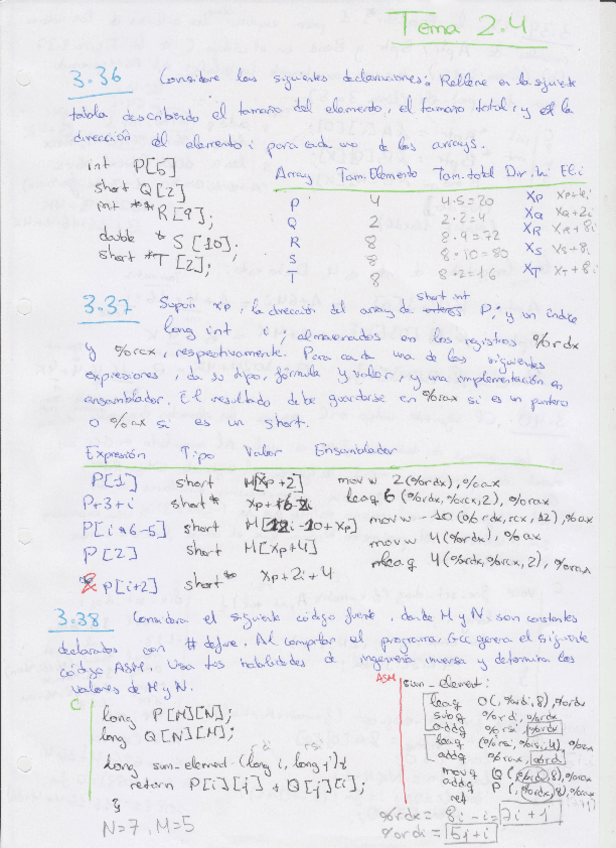 Tema 2.4
3.36 Considere las siguientes declaraciones: Rellene en la siguiente
tabla describiendo el tamaño del elemento, el tamaño total, y la
dirección del elemento i para cada uno de los arrays.
int P[5]
short Q[2]
int **R[9];
double *S[10];
short *T[2];
Array Tam. Elemento Tam. total Dir. ini El. i
P 4 4·5=20 Xp Xp+4i
Q 2 2·2=4 XQ XQ+2i
R 8 8·9=72 XR XR+8i
S 8 8·10=80 XS XS+8i
T 8 8·2=16 XT XT+8i
3.37 Supón xp, la dirección del array de short int P, y un índice
long int i, almacenados en los registros %rdx
y %rcx, respectivamente. Para cada una de las siguientes
expresiones, da su tipo, fórmula y valor, y una implementación en
ensamblador. El resultado debe guardarse en %rax si es un puntero
o %ax si es un short.
Expresión Tipo Valor Ensamblador
P[1] short M[Xp+2] movw 2(%rdx), %ax
P+3+i short* Xp+6+2i leaq 6(%rdx,%rcx,2), %rax
P[i*6-5] short M[12i-10+Xp] movw -10(%rdx,rcx,12), %ax
P[2] short M[Xp+4] movw 4(%rdx), %ax
& P[i+2] short* Xp+2i+4 leaq 4(%rdx,%rcx,2), %rax
3.38 Considera el siguiente código fuente, donde M y N son constantes
declaradas con #define. Al compilar el programa, GCC genera el siguiente
código ASM. Usa tus habilidades de ingeniería inversa y determina los
valores de M y N.
C
long P[M][N];
long Q[N][M];
rdi rsi
long sum_element (long i, long j) {
return P[i][j] + Q[j][i];
}
N=7, M=5
ASM
sum_element:
leaq 0(,%rdi,8), %rdx
subq %rdi, %rdx
addq %rsi, %rdx
leaq (%rsi,%rsi,4), %rax
addq %rax, %rdi
movq Q(,%rdi,8), %rax
addq P(,%rdx,8), %rax
ret
%rdx = 8i-i= 7i+j
%rdi = 5j+i